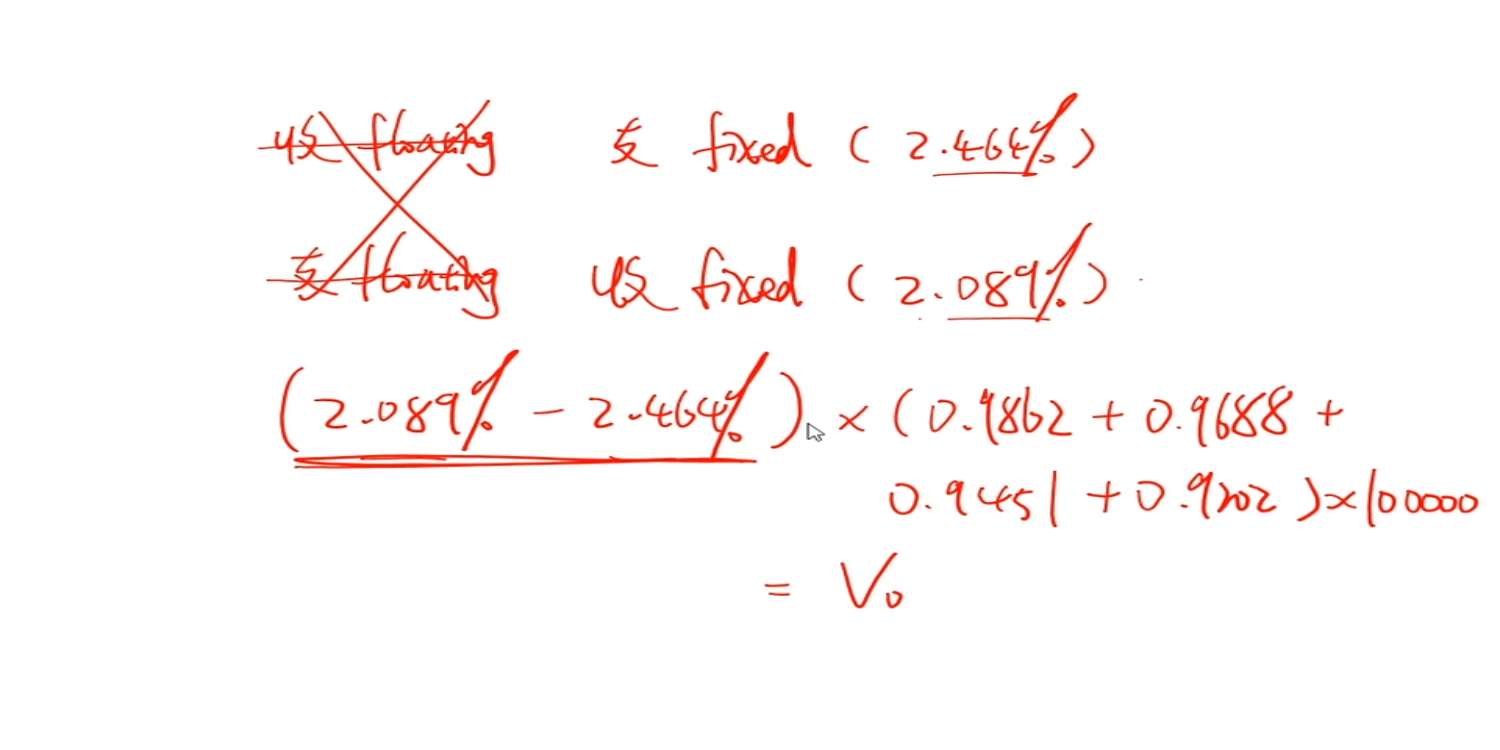 收 floating 支 fixed ( 2.464% )
支 floating 收 fixed ( 2.089% )
(2.089% - 2.464%) × ( 0.9862 + 0.9688 +
0.9451 + 0.9202 ) × 100000
= V₀